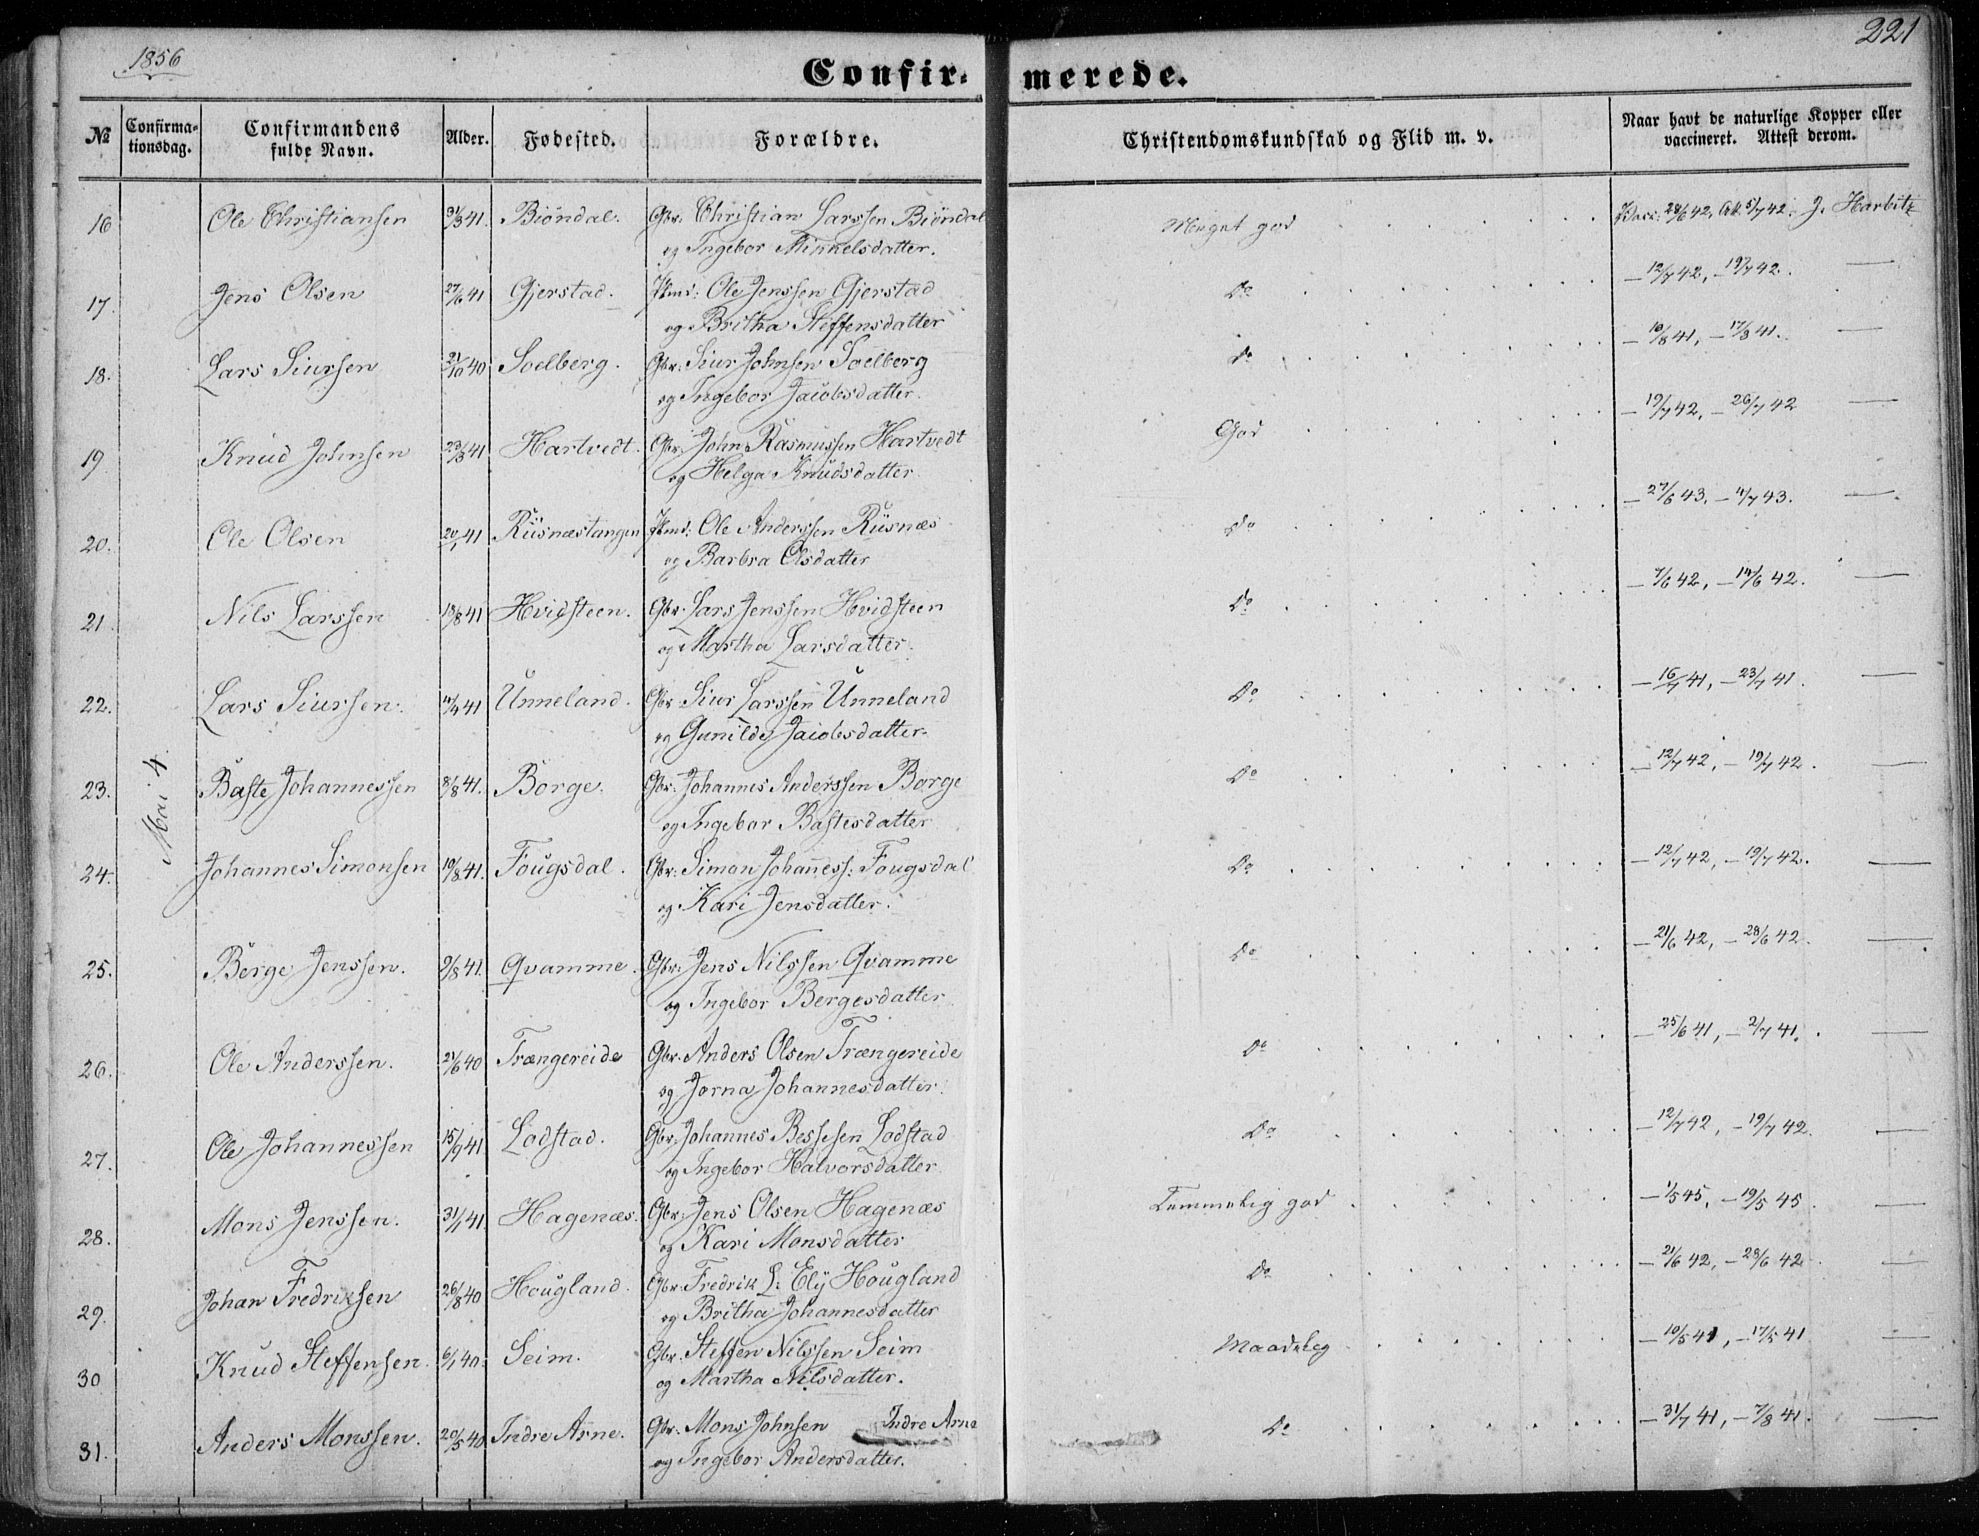 1856
221
Confir- merede.
№ Confirma-tionsdag. Confirmandens fulde Navn. Alder. Fodested. Forældre. Christendomskundskab og Flid m. v. Naar havt de naturlige Kopper eller vaccineret. Attest derom.
Mai 4
16 Ole Christiansen 31/3 41. Biöndal. Gbr: Christian Larssen Biöndal Meget god Vacc: 28/6 42, Att: 5/7 42. J. Harbitz
og Ingebor Minkelsdatter.
17. Jens Olsen 27/6 41 Gjerstad. Pkmd: Ole Jenssen Gjerstad Do — 12/7 42, — 19/7 42. —
og Britha Steffensdatter
18. Lars Siursen 21/10 40 Soelberg. Gbr: Siur Johnsen Soelberg Do — 10/8 41, — 17/8 41. —
og Ingebor Jacobsdatter.
19 Knud Johnsen 23/3 41 Hartvedt. Gbr: John Rasmussen Hartvedt God — 19/7 42, — 26/7 42 —
og Helga Knudsdatter
20. Ole Olsen 20/1 41 Riisnæstangen Pkmd: Ole Anderssen Riisnæs Do — 27/6 43, — 4/7 43. —
og Barbra Olsdatter
21. Nils Larssen 18/8 41 Hvidsteen. Gbr: Lars Jenssen Hvidsteen Do — 7/6 42, — 14/6 42. —
og Martha Larsdatter.
22. Lars Siursen. 14/4 41 Unneland. Gbr: Siur Larssen Unneland Do — 16/7 41, — 23/7 41. —
og Gunilde Jacobsdatter.
23. Baste Johannessen 8/8 41. Borge. Gbr: Johannes Anderssen Borge Do — 12/7 42, — 19/7 42. —
og Ingebor Bastesdatter
24. Johannes Simonsen 10/8 41. Fougsdal. Gbr: Simon Johanness: Fougsdal Do — 12/7 42, — 19/7 42. —
og Kari Jensdatter.
25. Berge Jenssen. 9/8 41. Qvamme. Gbr: Jens Nilssen Qvamme Do — 21/6 42, — 28/6 42. —
og Ingebor Bergesdatter.
26. Ole Anderssen. 21/6 40 Trængereide Gbr: Anders Olsen Trængereide Do — 25/6 41, — 2/7 41. —
og Jorna Johannesdatter.
27. Ole Johannessen 15/9 41 Lodstad. Gbr: Johannes Bessesen Lodstad Do — 12/7 42, — 19/7 42. —
og Ingebor Halvorsdatter.
28. Mons Jenssen. 31/1 41 Hagenæs. Gbr: Jens Olsen Hagenæs Temmelig god — 1/5 45, — 19/5 45. —
og Kari Monsdatter
29. Johan Fredriksen 26/8 40 Hougland. Gbr: Fredrik L: Ely Hougland Do — 21/6 42, — 28/6 42 —
og Britha Johannesdatter
30 Knud Steffensen. 6/1 40. Seim. Gbr: Steffen Nilssen Seim Maadelig — 10/5 41, — 17/5 41 —
og Martha Nilsdatter.
31. Anders Monssen. 20/5 40 Indre Arne. Gbr: Mons Johnsen Indre Arne Do — 31/7 41, — 7/8 41. —
og Ingebor Andersdatter.